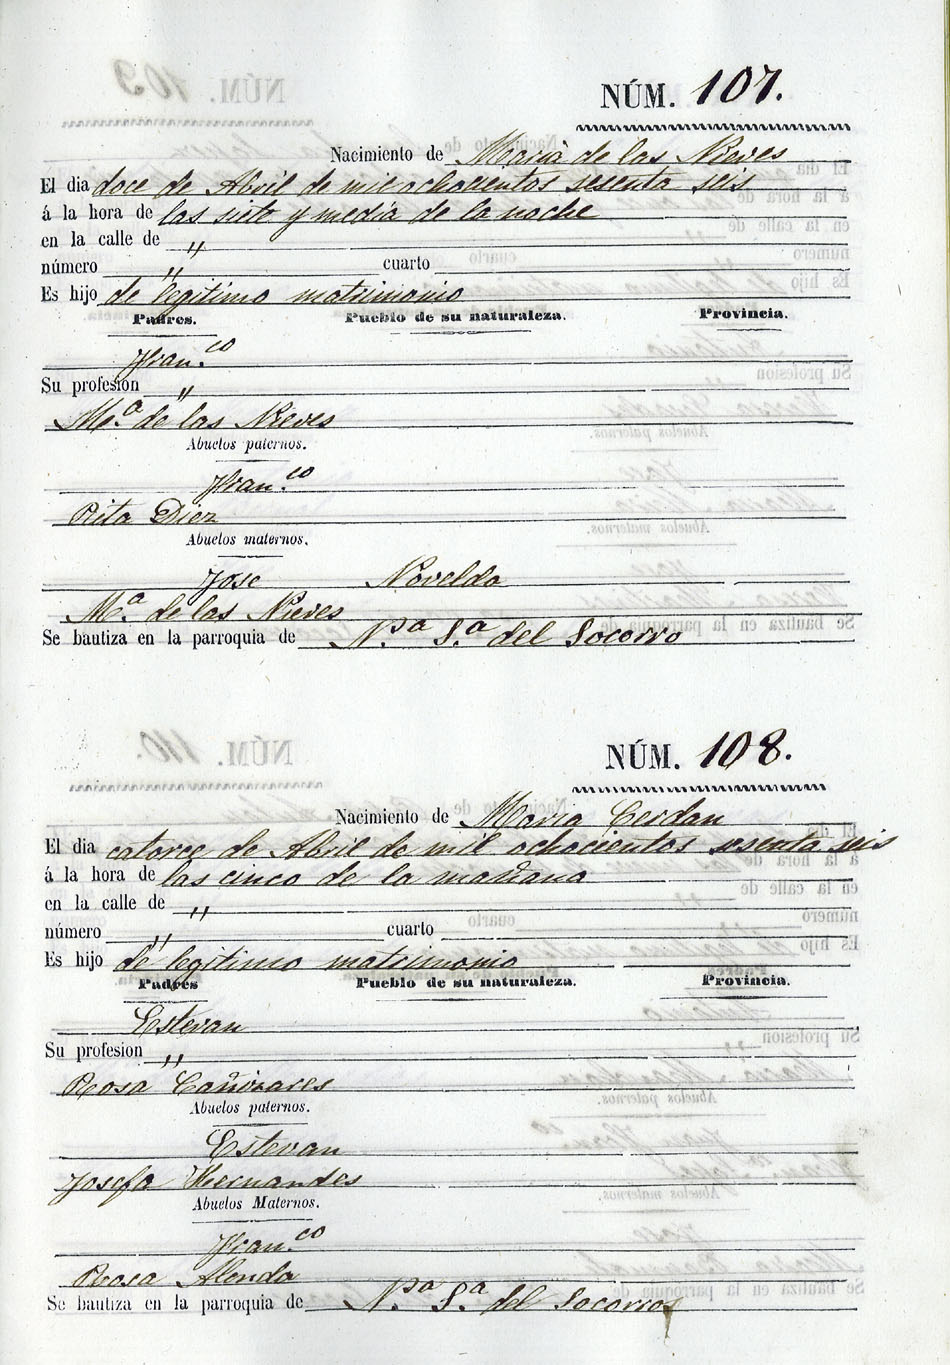 NÚM. 107.
Nacimiento de Maria de las Nieves
El dia doce de Abril de mil ochocientos sesenta seis
á la hora de las siete y media de la noche
en la calle de "
número " cuarto
Es hijo de legitimo matrimonio
Padres. Pueblo de su naturaleza. Provincia.
Fran.co
Su profesion "
M.a de las Nieves
Abuelos paternos.
Fran.co
Rita Diez
Abuelos maternos.
Jose Novelda
M.a de las Nieves
Se bautiza en la parroquia de N.ra S.a del Socorro
NÚM. 108.
Nacimiento de Maria Cerdan
El dia catorce de Abril de mil ochocientos sesenta seis
á la hora de las cinco de la mañana
en la calle de "
número " cuarto
Es hijo de legitimo matrimonio
Padres Pueblo de su naturaleza. Provincia.
Estevan
Su profesion "
Rosa Cañizares
Abuelos paternos.
Estevan
Josefa Hernandes
Abuelos Maternos.
Fran.co
Rosa Alenda
Se bautiza en la parroquia de N.ra S.a del Socorros